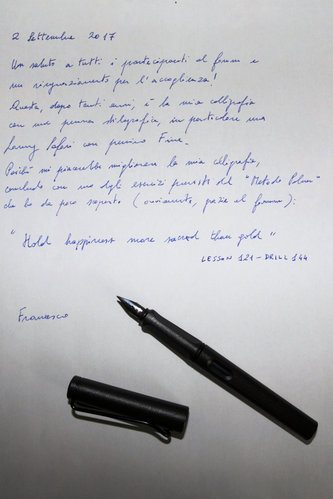 2 Settembre 2017
Un saluto a tutti i partecipanti al forum e
un ringraziamento per l'accoglienza!
Questa, dopo tanti anni, è la mia calligrafia
con una penna stilografica, in particolare una
Lamy Safari con pennino Fine.
Poiché mi piacerebbe migliorare la mia calligrafia,
concludo con uno degli esercizi previsti dal "Metodo Palmer"
che ho da poco scoperto (ovviamente, grazie al forum):
"Hold happiness more sacred than gold"
LESSON 121 - DRILL 144
Francesco